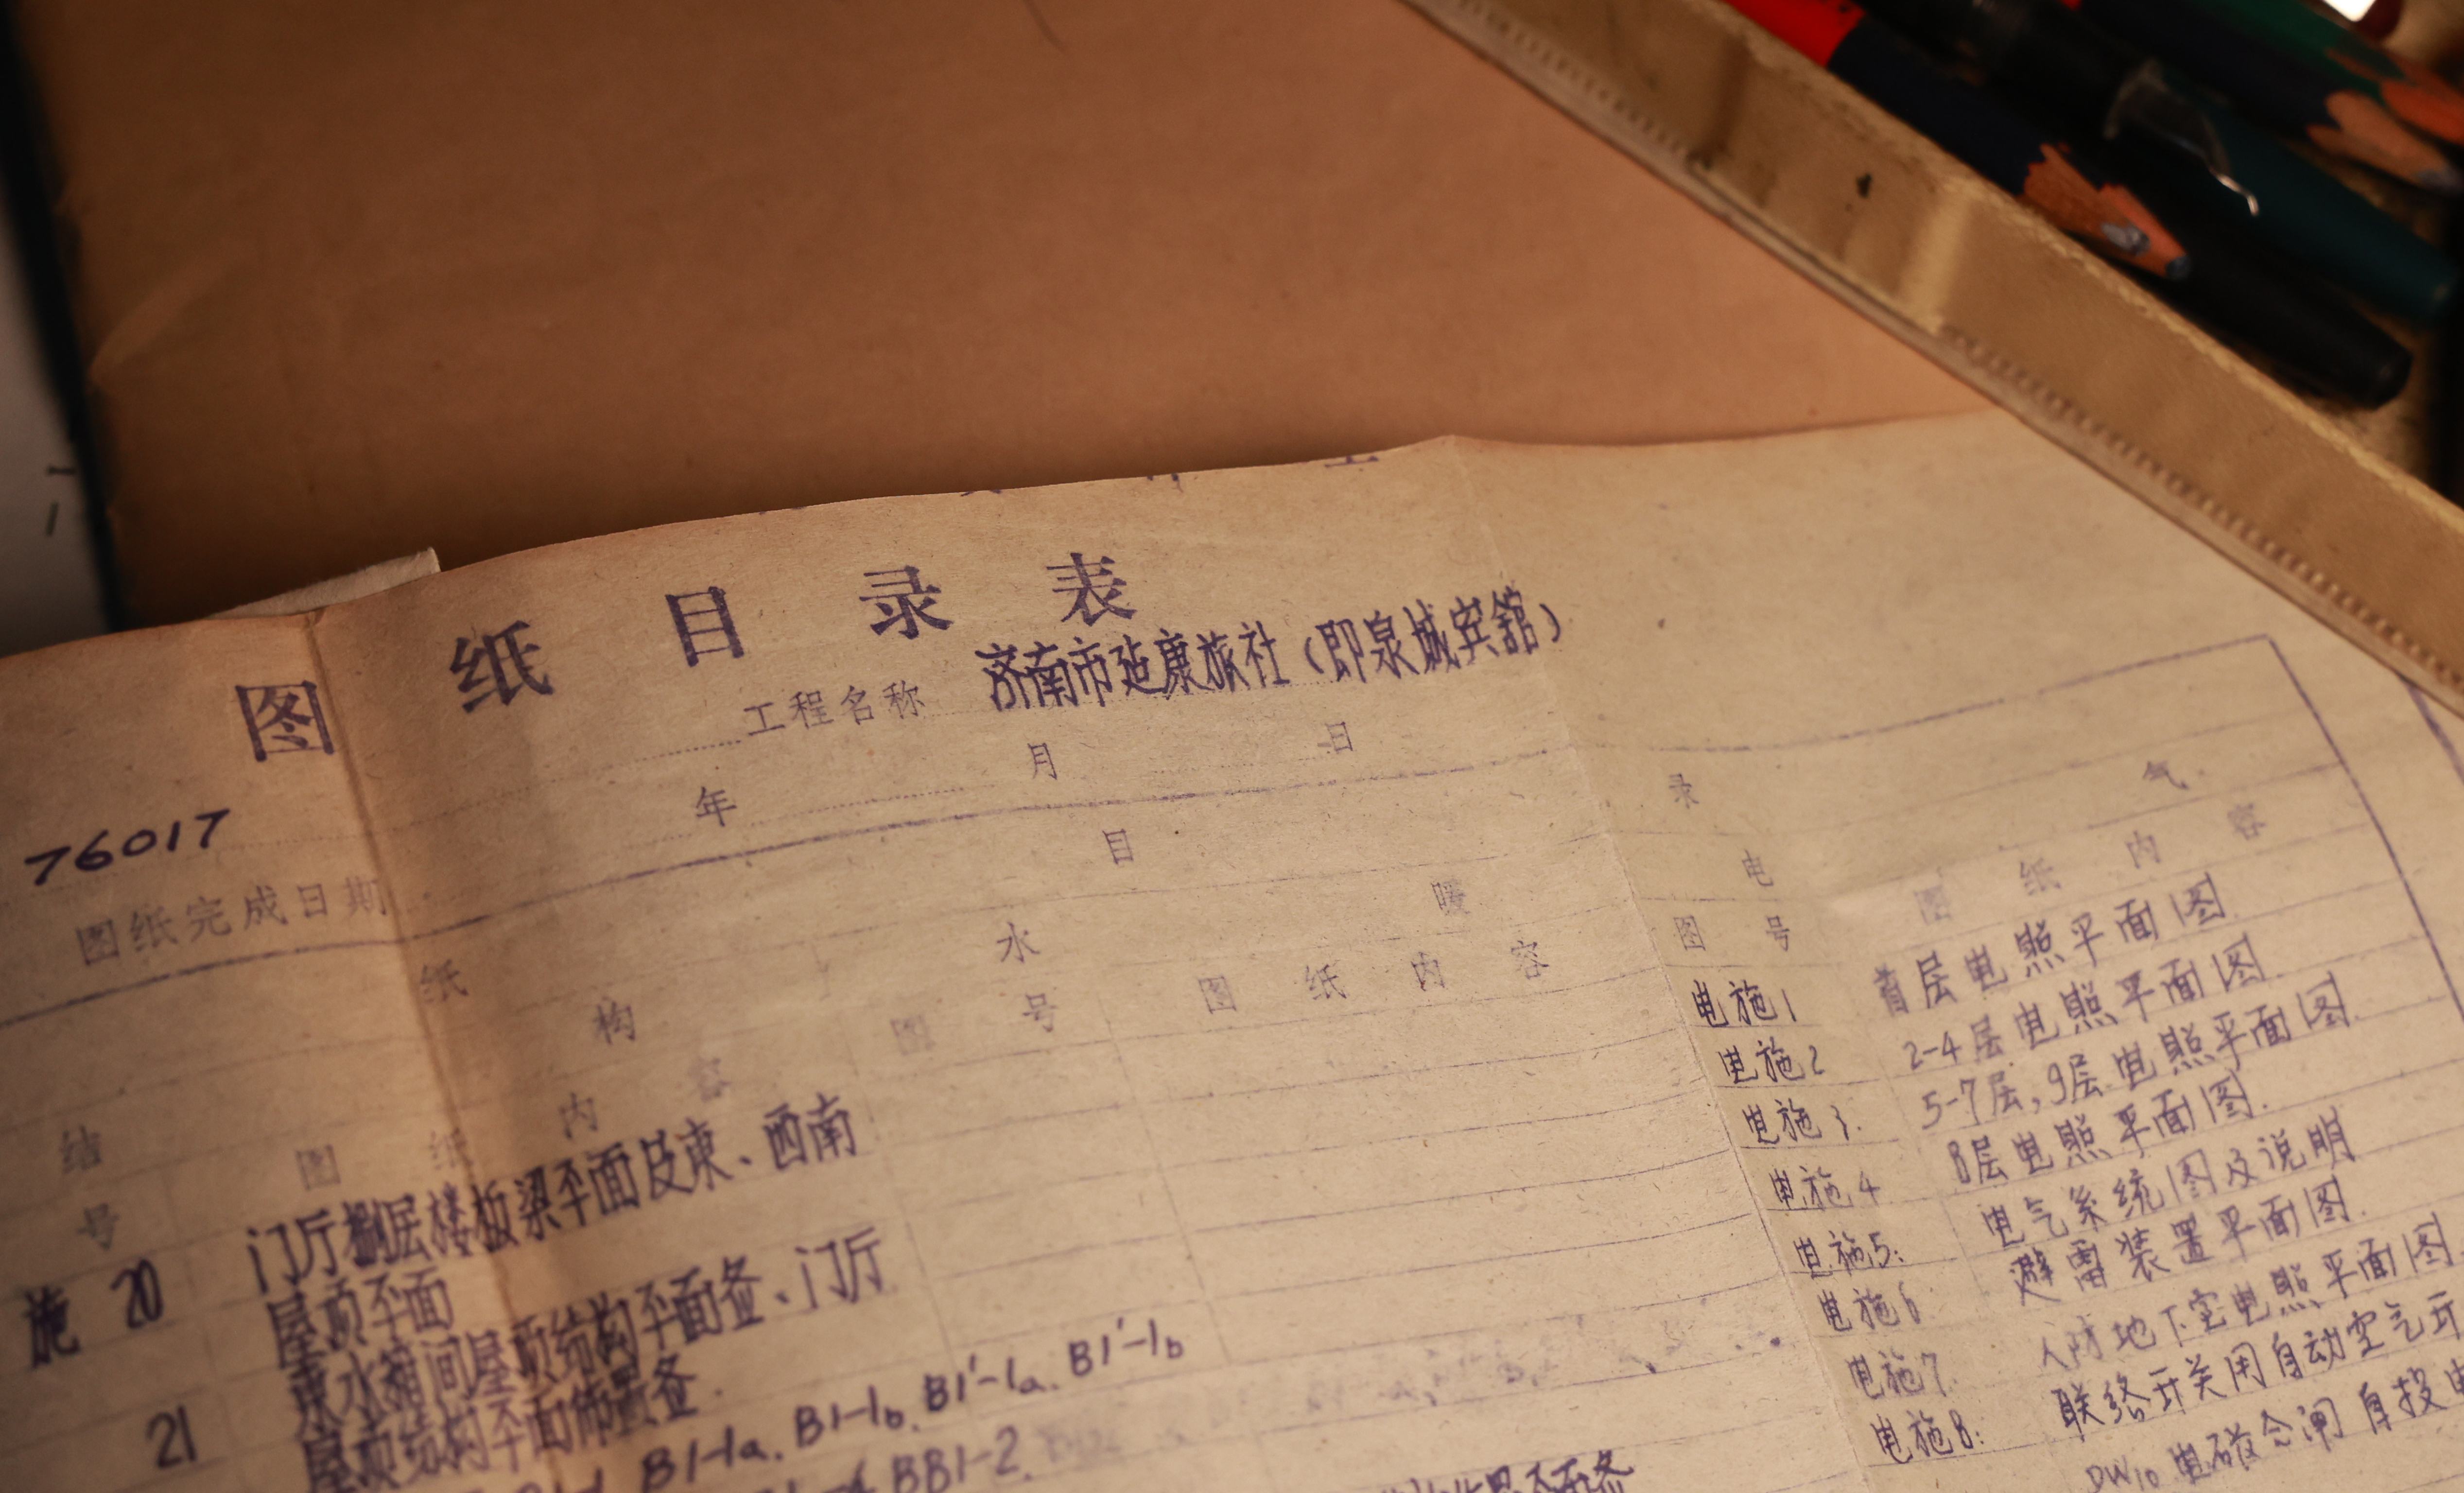 图纸目录表
工程名称 济南市延康旅社（即泉城宾館）
年 月 日
76017
图纸完成日期
纸 目 录
结 构
号 图纸内容
水 暖
图号 图纸内容
电 气
图号 图纸内容
施 20 门厅捌层楼板梁平面及東、西南
屋顶平面
21 東水箱间屋顶结构平面叁、门厅
屋顶结构平面佈置叁
B1-1a. B1-1b. B1'-1a. B1'-1b
BB1-2.
电施1 首层电照平面图.
电施2 2-4层电照平面图.
电施3. 5-7层,9层电照平面图.
电施4 8层电照平面图.
电施5: 电气系统图及说明
电施6 避雷装置平面图.
电施7. 人防地下室电照平面图
电施8: 联络开关用自动空气开
DW10 电磁合闸 自投